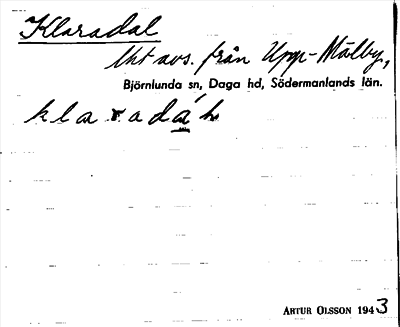 Klaradal
lht avs. från Upp-Mälby,
Björnlunda sn, Daga hd, Södermanlands län.
klaradáh
ARTUR OLSSON 1943